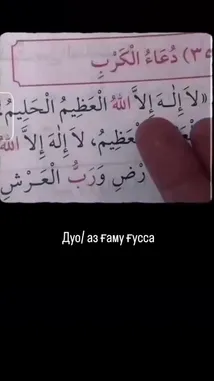 ٣٥) دُعَاءُ الْكَرْبِ
«لاَ إِلَـٰهَ إِلاَّ اللهُ الْعَظِيمُ الْحَلِيمُ،
الْعَظِيمُ، لاَ إِلَهَ إِلاَّ اللهُ
رْضِ وَرَبُّ الْعَرْشِ
Дуо/ аз ғаму ғусса